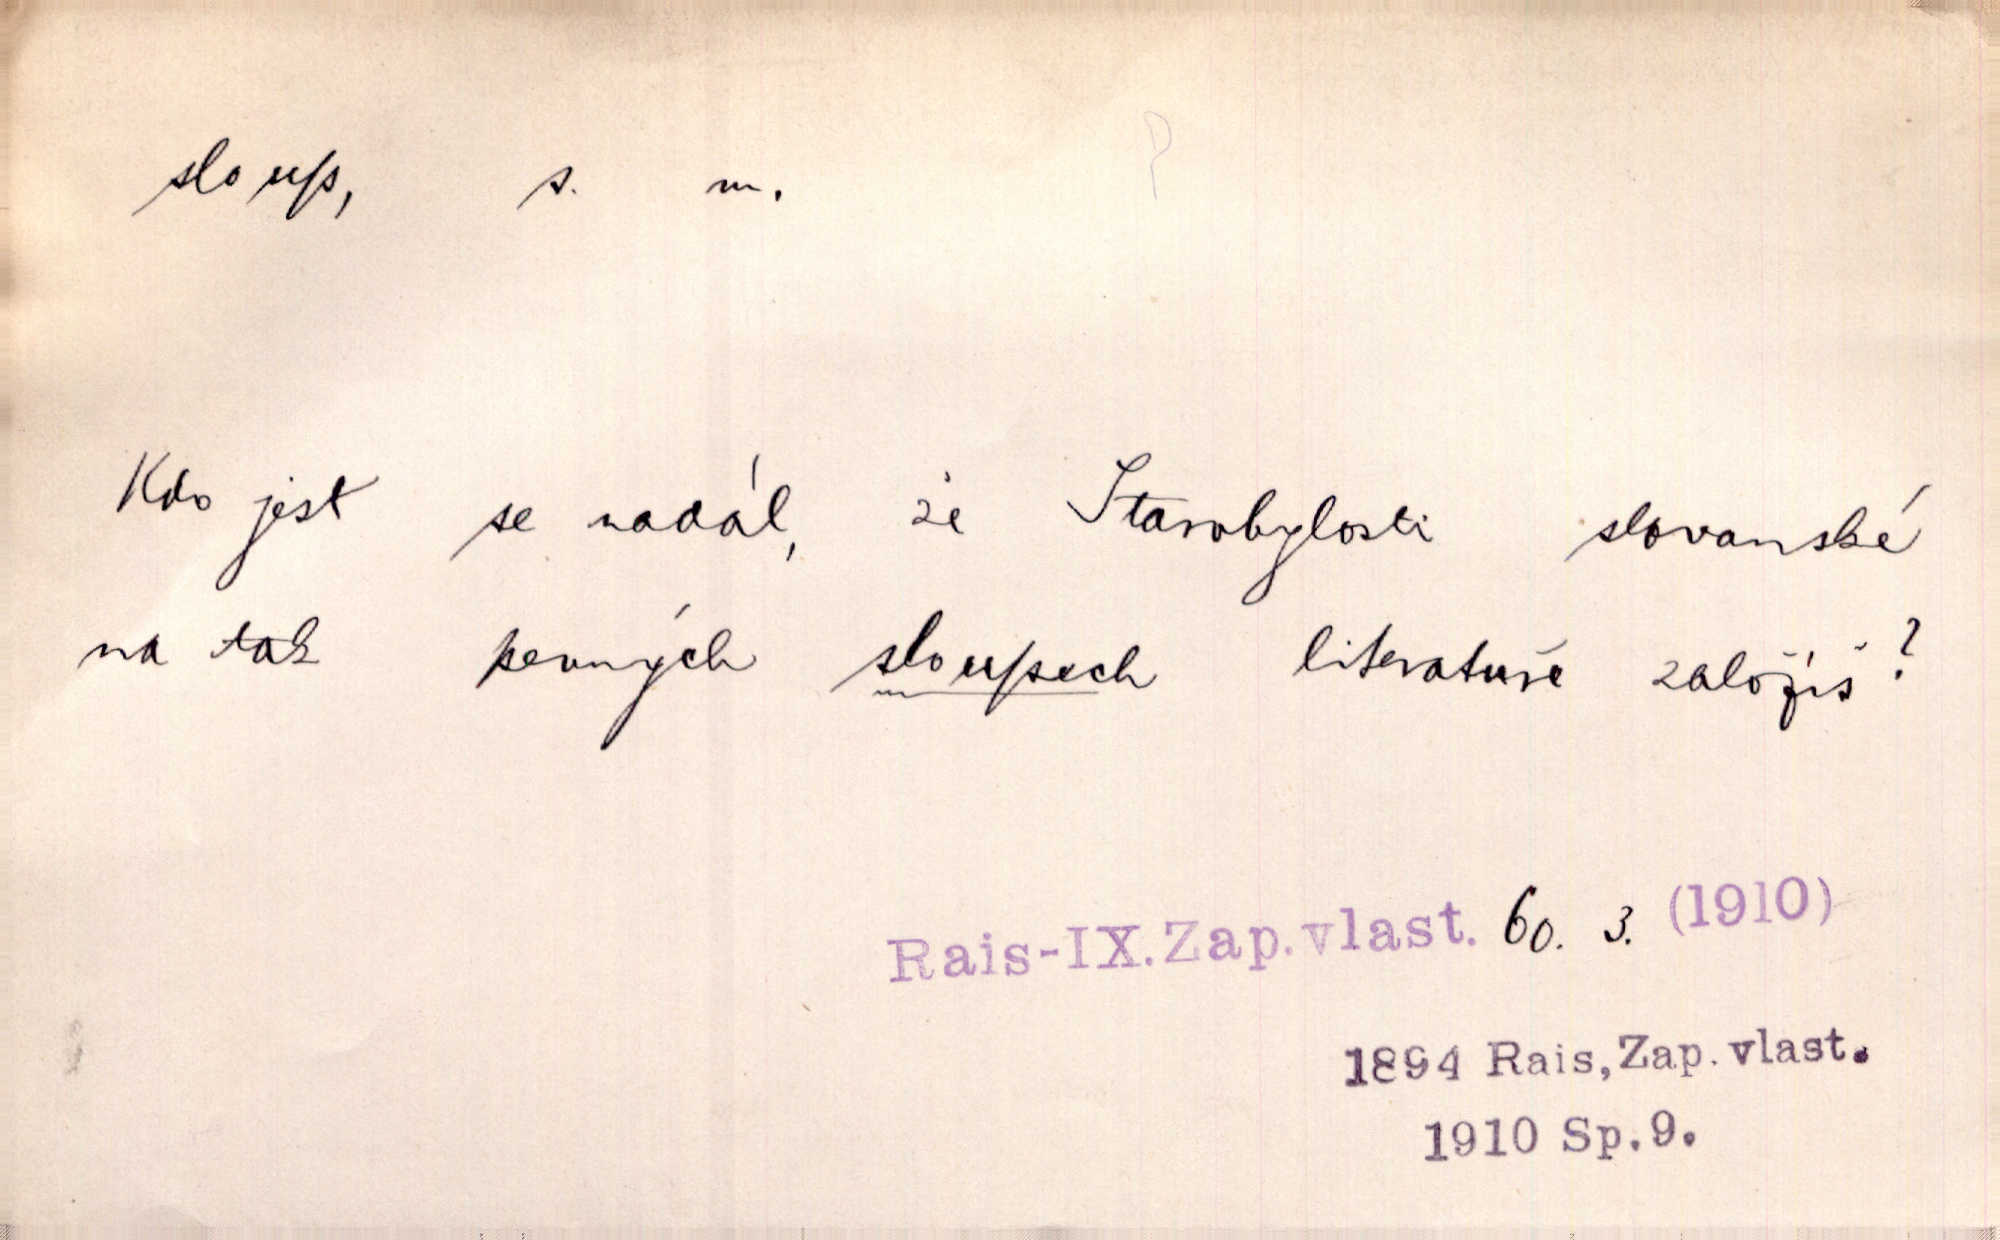 sloup, s. m.
Kdo jest se nadál, že Starobylosti slovanské
na tak pevných sloupech literatuře založíš?
Rais-IX.Zap.vlast. 60. 3. (1910)
1894 Rais, Zap. vlast.
1910 Sp.9.